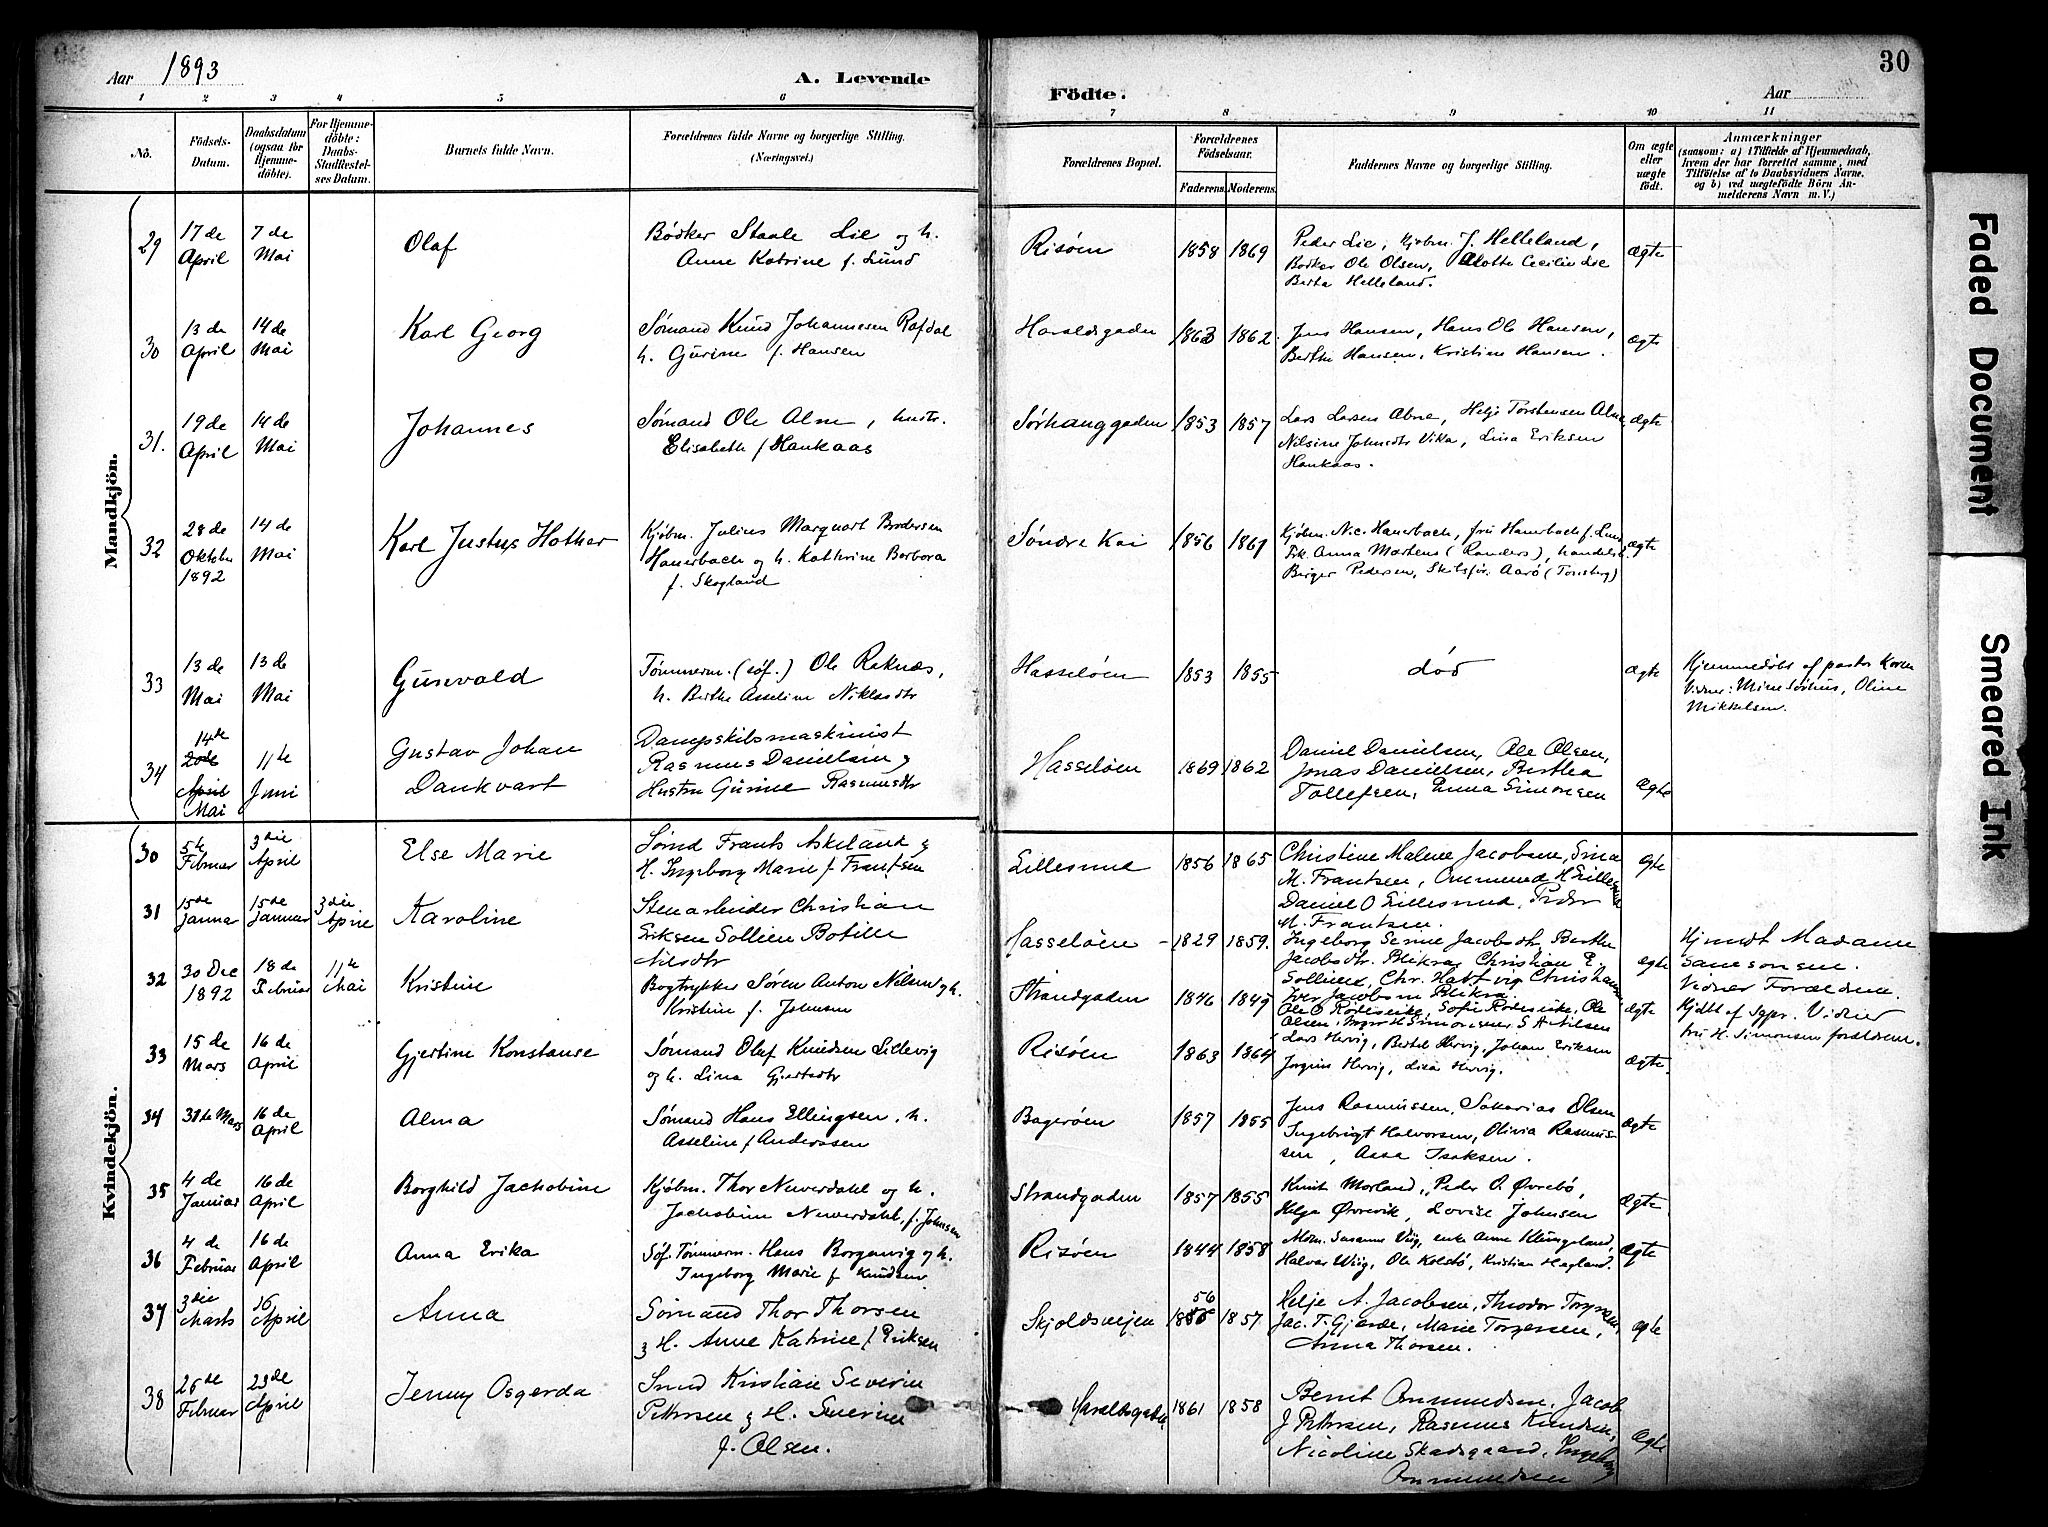 Aar 1893
A. Levende
Födte.
Aar
30
1 2 3 4 5 6 7 8 9 10 11
Nö.
Födsels-
Datum.
Daabsdatum
(ogsaa for
Hjemme-
döbte).
For Hjemme-
döbte:
Daabs-
Stadfæstel-
ses Datum.
Barnets fulde Navn.
Forældrenes fulde Navne og borgerlige Stilling.
(Næringsvei.)
Forældrenes Bopæl.
Forældrenes
Födselsaar.
Faderens. Moderens.
Faddernes Navne og borgerlige Stilling.
Om ægte
eller
uægte
födt.
Anmærkninger
(saasom: a) i Tilfælde af Hjemmedaab,
hvem der har forrettet samme, med
Tilföielse af to Daabsvidners Navne,
og b) ved uægtefödte Börn An-
melderens Navn m. V.)
Mandkjön.
29 17 de April 7 de Mai Olaf
Bødker Staale Lie og h.
Anne Katrine f. Lund
Risøen 1858 1869
Peder Lie, Kjøbm. J. Helleland,
Bødker Ole Olsen, Cecilie Lie
Berta Helleland.
ægte
30 13 de April 14 de Mai Karl Georg
Sømand Knud Johannesen Rafdal
h. Gurine f. Hansen
Haraldsgaden 1863 1862
Jens Hansen, Hans Ole Hansen,
Berthe Hansen, Kristine Hansen.
ægte
31. 19 de April 14 de Mai Johannes
Sømand Ole Alne, hustr.
Elisabeth f Haukaas
Sørhauggaden 1853 1857
Lars Larsen Alne, Helje Torstensen Alne
Nilsine Johnsdtr Vika, Lina Eriksen
Haukaas.
ægte
32 28 de Oktbr 1892 14 de Mai Karl Justus Hother
Kjøbm. Julius Marquart Brodersen
Hauerbach og h. Kathrine Barbora
f. Skogland
Søndre Kai 1856 1861
Kjøbm. N. C. Hauerbach, fru Hauerbach f. Lund
Frk. Anna Martens (Randers), handelsb.
Birger Pedersen, Skibsfør. Aarø (Tønsberg)
ægte
33 13 de Mai 13 de Mai Gunvald
Tømmerm. (søf.) Ole Reknæs,
h. Berthe Asseline Niklasdtr
Hasseløen 1853 1855
død
ægte
Hjemmedøbt af pastor Koren
Vidner: Mine Sørhus, Oline
Mikkelsen.
34 14de 20de April Mai 11te Juni Gustav Johan
Dankvart
Dampskibsmaskinist
Rasmus Danielsen &
Hustru Gurine Rasmusdtr
Hasseløen 1869 1862
Daniel Danielsen, Ole Olsen,
Jonas Danielsen, Berthea
Tollefsen, Emma Simonsen
ægte
Kvindekjön.
30 5te Februar 3die April Else Marie
Sømd Frants Askeland &
H. Ingeborg Marie f Frantsen
Lillesund 1856 1865
Christine Malene Jacobsen, Sina
M. Frantsen, Ommund H Lillesund
Daniel O Lillesund, Peder
M. Frantsen.
ægte
31 15de Januar 15de Januar 3die April Karoline
Stenarbeider Christian
Eriksen Sollien Botille
Nilsdtr
Hasseløen 1829 1859.
Ingeborg Serine Jacobsdtr, Berthe
Jacobsdtr. Blikra, Christian E.
Sollien, Chr. Christiansen
Iver Jacobsen Blikra.
ægte
Hjmdt Madame
Samsonsen.
Vidner Forældrene.
32 30 Dec 1892 18 de Februar 11te Mai Kristine
Bogtrykker Søren Anton Nilsen og h.
Kristine f. Johnsen
Strandgaden 1846 1849
Ole O Rødeseike, Sofie Rødeseike, Ole
Olsen, Inger H Simonsen, S A Nilsen
ægte
Hjdbt af Sgpr. Vidner
fru H. Simonsen forældrene.
33 15 de Mars 16 de April Gjertine Konstanse
Sømand Olaf Knudsen Lillevig
og h. Lina Gjertsdtr
Risøen 1863 1864
Lars Hervig, Bertel Hervig, Johan Eriksen
Jorgine Hervig, Lisa Hervig.
ægte.
34 31te Mars 16 de April Alma
Sømand Hans Ellingsen, h.
Asseline f Anderssen
Bagerøen 1857 1855
Jens Rasmussen, Sakarias Olsen
Ingebrigt Halvorsen, Olivia Rasmus-
sen, Aasa Isaksen.
ægte
35 4 de Januar 16 de April Borghild Jachobine
Kjøbm. Thor Neverdahl og h.
Jachobine Neverdahl, f. Johnsen
Strandgaden 1857 1855
Knut Morland, Peder O. Øvrebø,
Helga Øvrevik, Lovise Johnsen
ægte
36 4 de Februar 16 de April Anna Erika
Søf Tømmerm. Hans Borgenvig og h.
Ingeborg Marie f Knudsen
Risøen 1844 1858
Mdm. Susanne Viig, enke Anne Klungeland,
Halvar Wiig, Ole Kolstø, Kristian Hagland.
ægte
37 3die Marts 16 April Anna
Sømand Thor Thorsen
& H. Anne Katrine f Eriksen
Skjoldsveien 56 1857
Helje A. Jacobsen, Theodor Torgersen,
Jac. T. Gjærde, Marie Torgersen,
Anna Thorsen.
ægte
38 26de Februar 23de April Jenny Osgerda
Smed Kristian Severin
Pettersen & H. Severine
f. Olsen.
Haraldsgaden 1861 1858
Bernt Ommundsen, Jacob
J Pettersen, Rasmus Knudsen,
Nicoline Skadsgaard, Ingeborg
Ommundsen
ægte
Faded Document
Smeared Ink